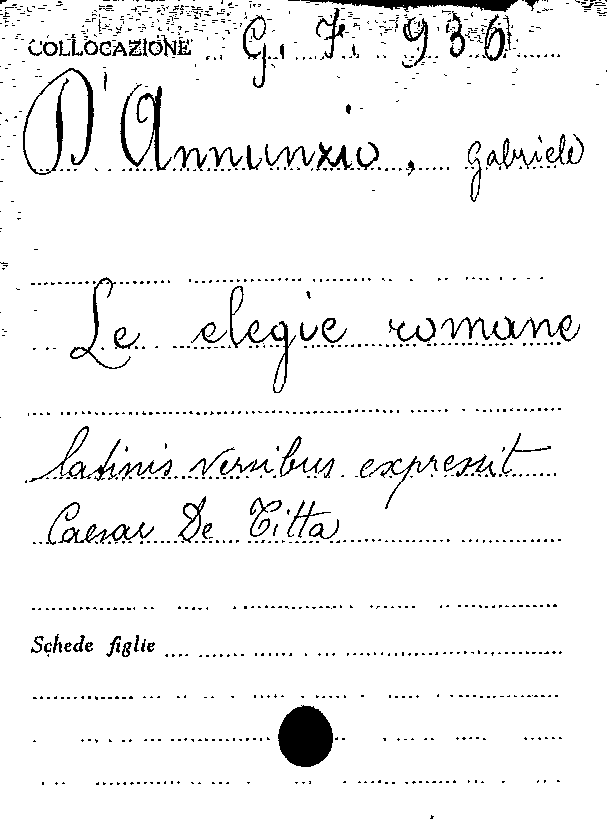 COLLOCAZIONE G. F. 936
D'Annunzio, Gabriele
Le elegie romane
latinis versibus expressit
Caesar De Titta
Schede figlie